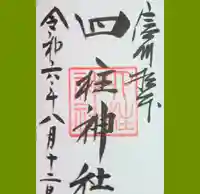 信州松本
四柱神社
令和六年八月十二日